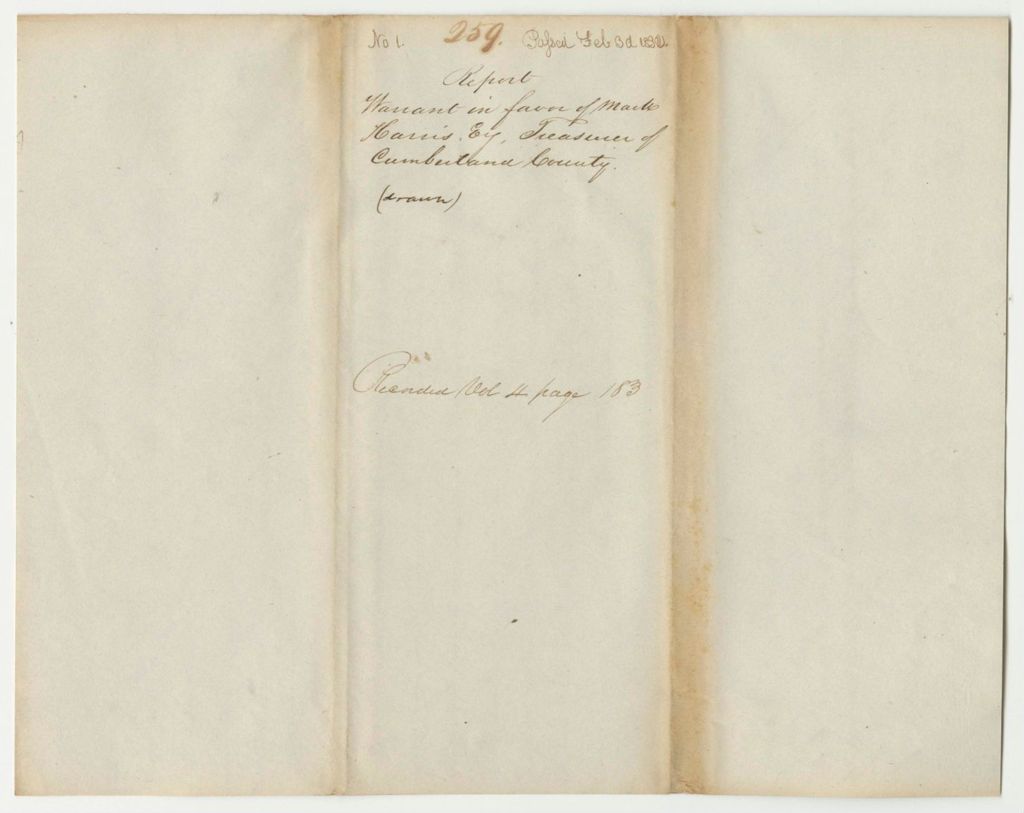 No 1. 259. Passed Feb 3d
Report
Warrant in favor of Mark
Harris, Esq, Treasurer of
Cumberland County.
(drawn)
Recorded Vol 4 page 183